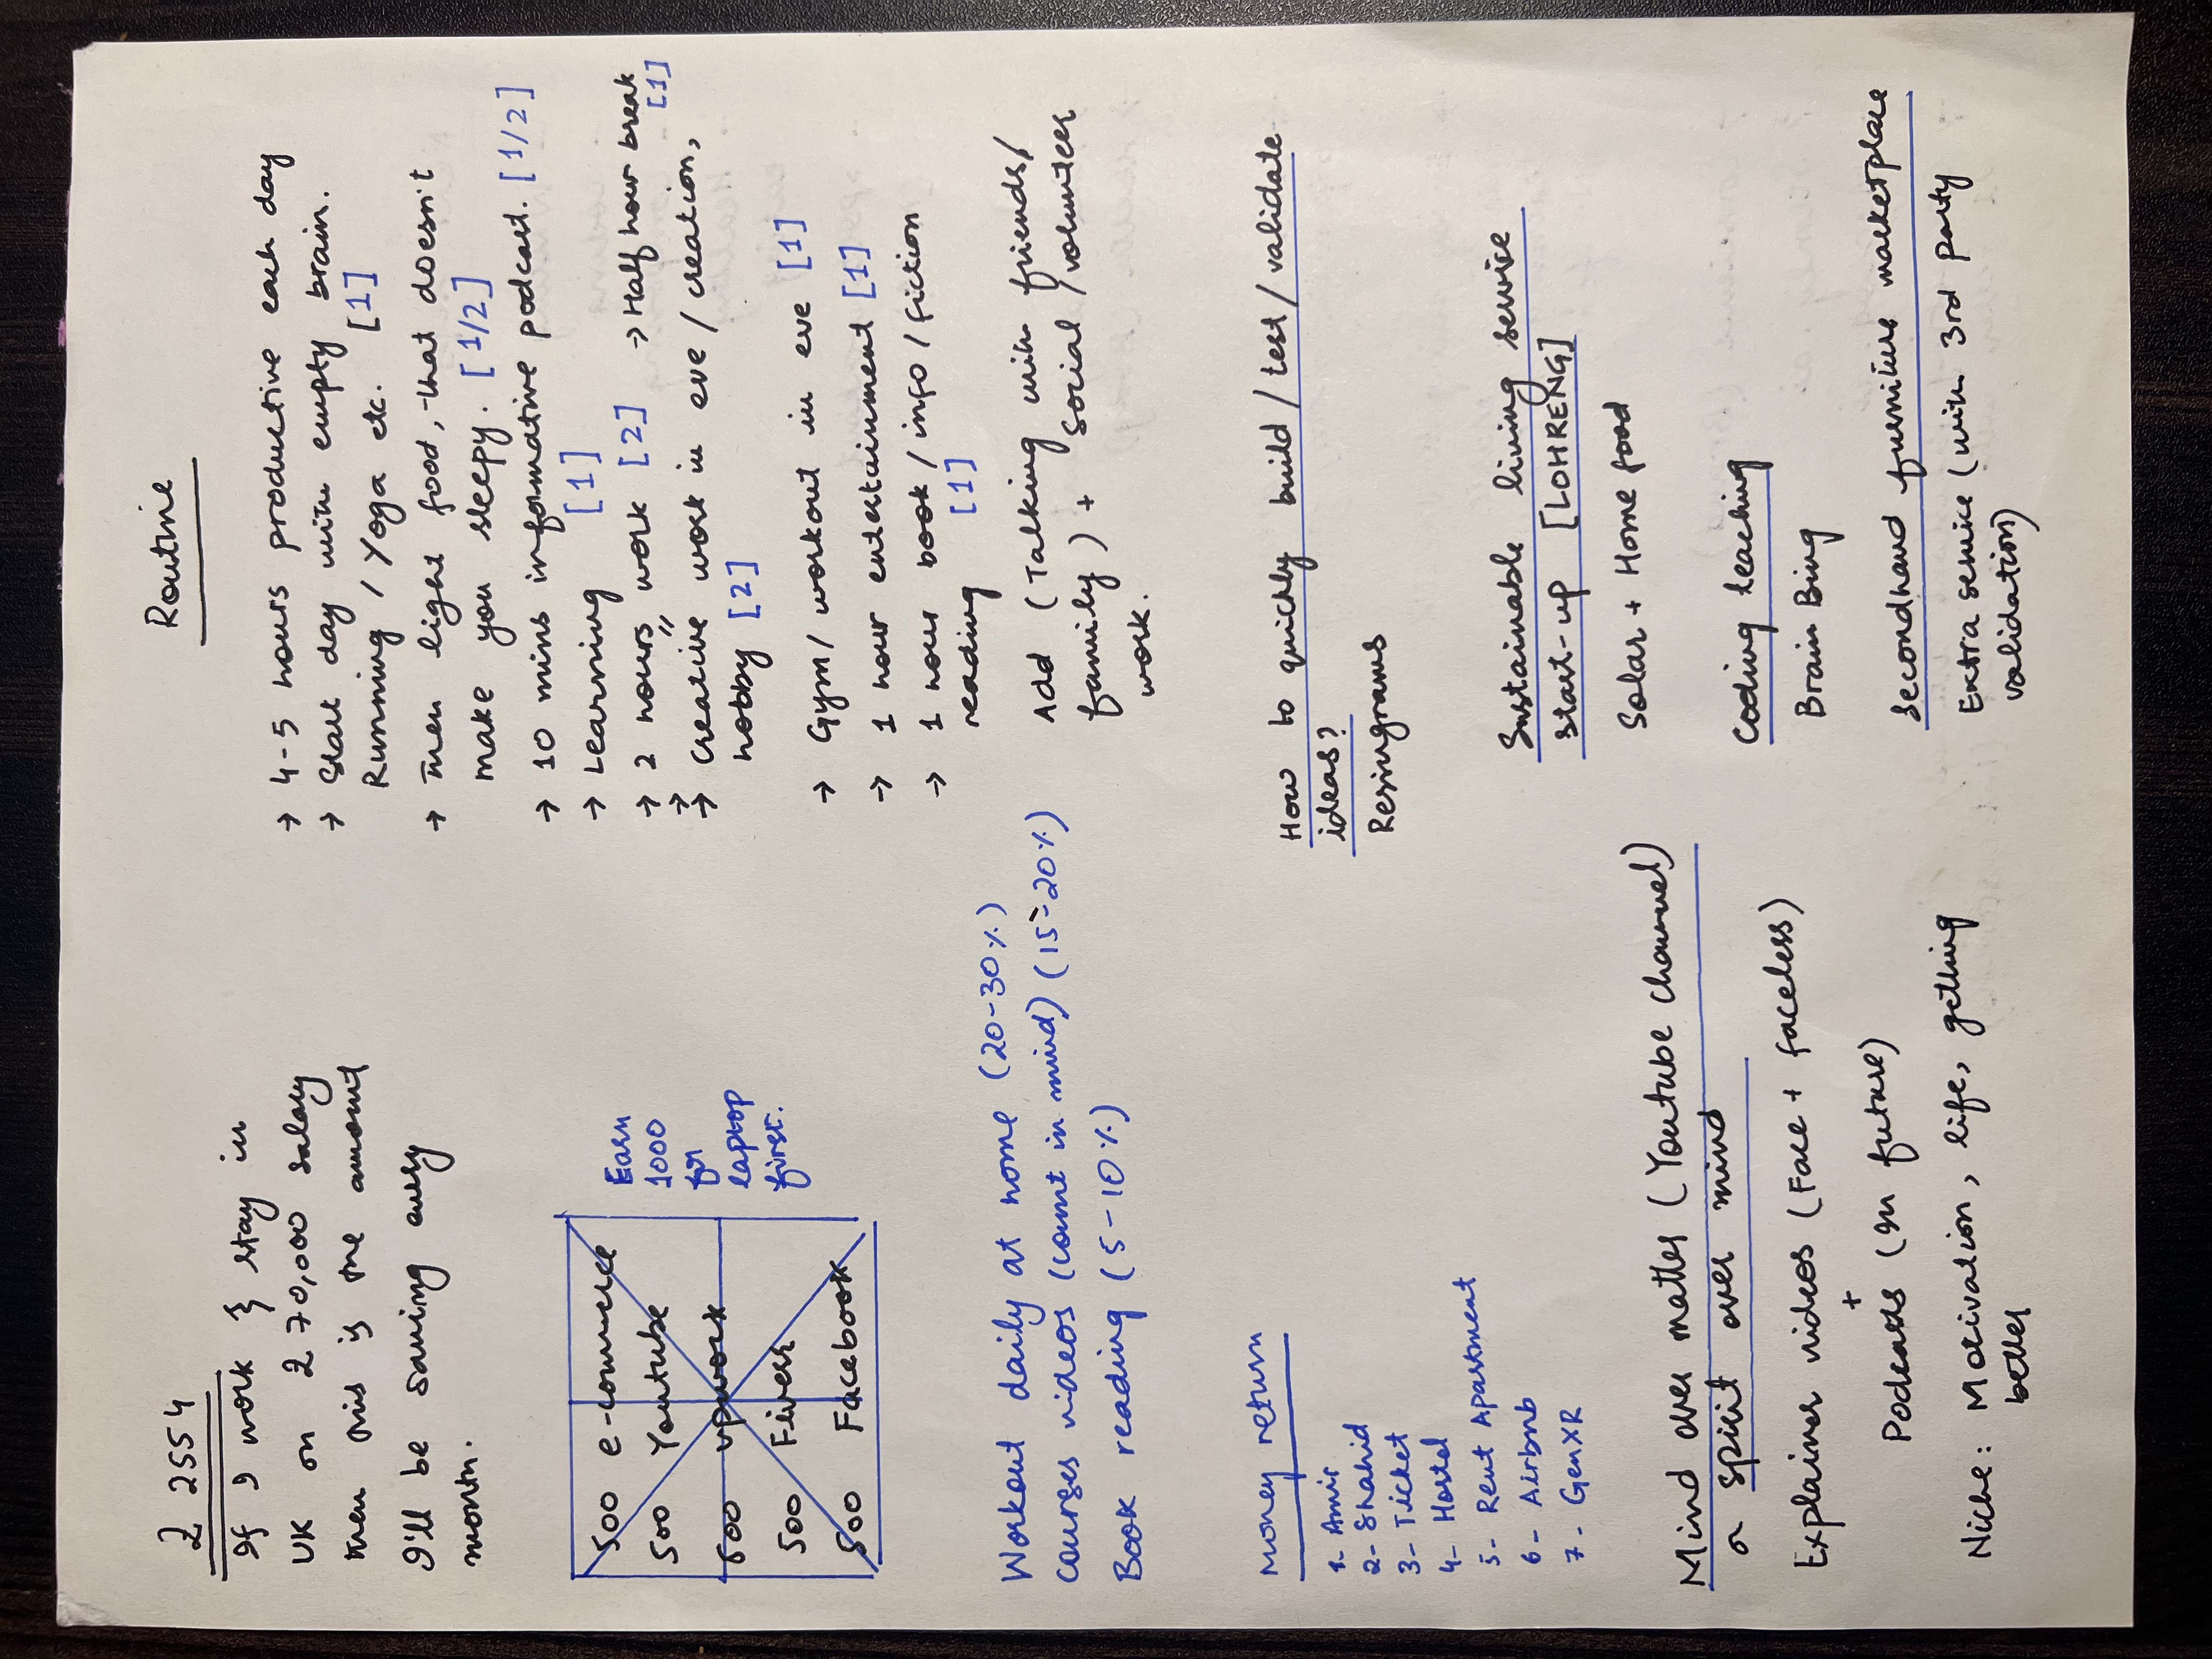 £ 2554
If I work & stay in
UK on £70,000 salary
then this is the amount
I'll be saving every
month.
500 e-commerce
500 Youtube
500 upwork
500 Fiverr
500 Facebook
Earn
1000
for
laptop
first.
Workout daily at home (20-30%)
Courses videos (count in mind) (15-20%)
Book reading (5-10%)
Money return
1- Amir
2- Shahid
3- Ticket
4- Hostel
5- Rent Apartment
6- Airbnb
7- GenXR
Mind over matter (Youtube channel)
a spirit over mind
Explainer videos (Face + faceless)
+
Podcasts (In future)
Niche: Motivation, life, getting
better
Routine
→ 4-5 hours productive each day
→ Start day with empty brain.
Running / Yoga etc. [1]
→ Then light food, that doesn't
make you sleepy. [1/2]
→ 10 mins informative podcast. [1/2]
→ Learning [1]
→ 2 hours work [2] → Half hour break
[1]
→ Creative work in eve / creation,
hobby [2]
→ Gym/ workout in eve [1]
→ 1 hour entertainment [1]
→ 1 hour book / info / fiction
reading [1]
Add (Talking with friends/
family) + Social / volunteer
work.
How to quickly build / test / validate
ideas?
Resingrams
Sustainable living service
start-up [LOHRENG]
Solar + Home food
Coding teaching
Brain Bing
Secondhand furniture marketplace
Extra service (with 3rd party
validation)